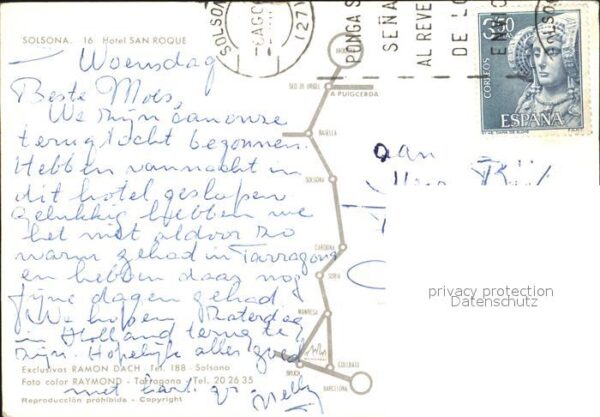 SOLSONA. 16 Hotel SAN ROQUE
Woensdag
Beste Moes,
We zijn aan onze
terugtocht begonnen.
Hebben vannacht in
dit hotel geslapen
gelukkig hebben we
het niet aldoor zo
warm gehad in Tarragona
en hebben daar nog
fijne dagen gehad!
We hopen Zaterdag
in Holland terug te
zijn. Hopelijk alles goed
met hart. gr. Nelly
Exclusivas RAMON DACH - Tel. 188 - Solsona
Foto color RAYMOND - Tarragona - Tel. 20 26 35
Reproducción prohibida - Copyright
SEO DE URGEL
A PUIGCERDA
BASELLA
SOLSONA
CARDONA
SURIA
MANRESA
BRUCH
COLLBATO
BARCELONA
SOLSON
AGO
(27)
PONGA S
SEÑA
AL REVE
DE LO
3'50
CORREOS
ESPAÑA
DAMA DE ELCHE
aan
privacy protection
Datenschutz